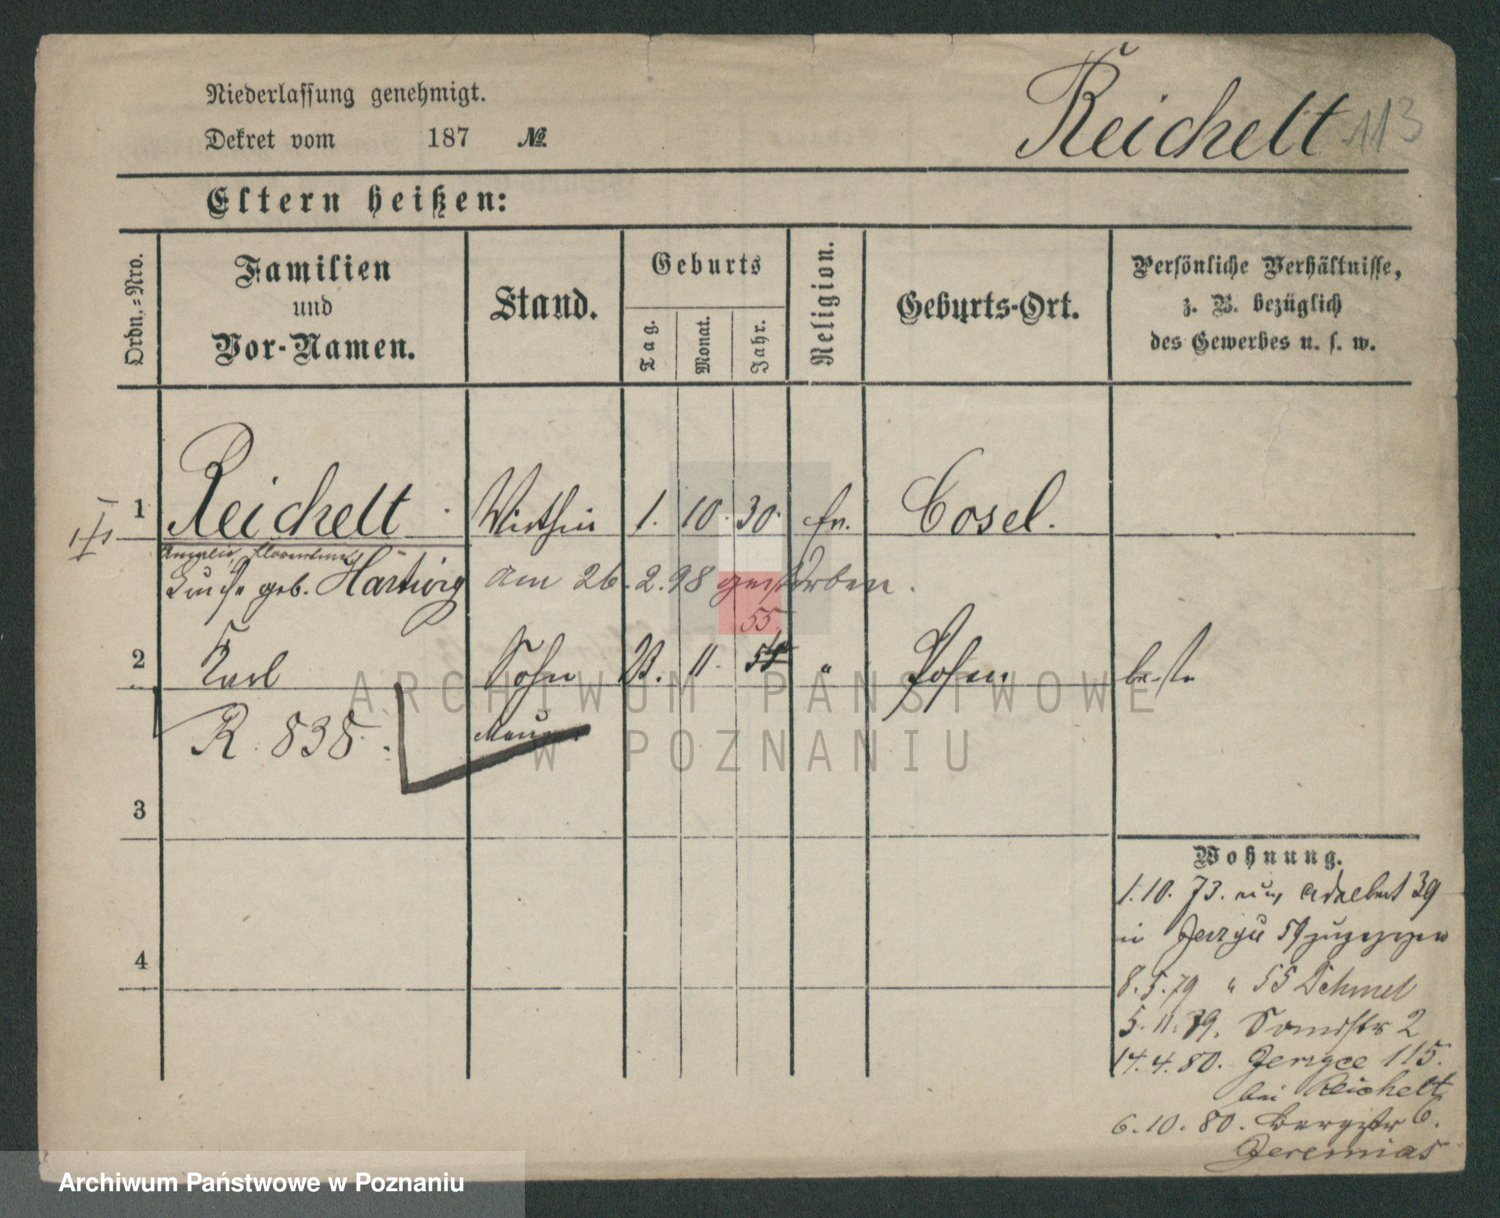 Niederlassung genehmigt.
Dekret vom 187 №
Reichelt 113
Eltern heißen:
Ordn.-Nro.
Familien
und
Vor-Namen.
Stand.
Geburts
Tag.
Monat.
Jahr.
Religion.
Geburts-Ort.
Persönliche Verhältnisse,
z. B. bezüglich
des Gewerbes u. s. w.
1 Reichelt Wirthin 1. 10. 30. ev. Cosel.
geb. Hartwig am 26.2.98 gestorben.
55.
2 Karl Sohn 23. 11. " Posen
R. 838.
3
4
Wohnung.
1.10. 73. Adalbert 39
in 59 zugezogen
8.5.79 " 55 Schmel
5.11.79. 2
14.4.80. 115.
bei Reichelt
6.10.80. Bergstr 6.
Jeremias
ARCHIWUM PAŃSTWOWE
W POZNANIU
Archiwum Państwowe w Poznaniu